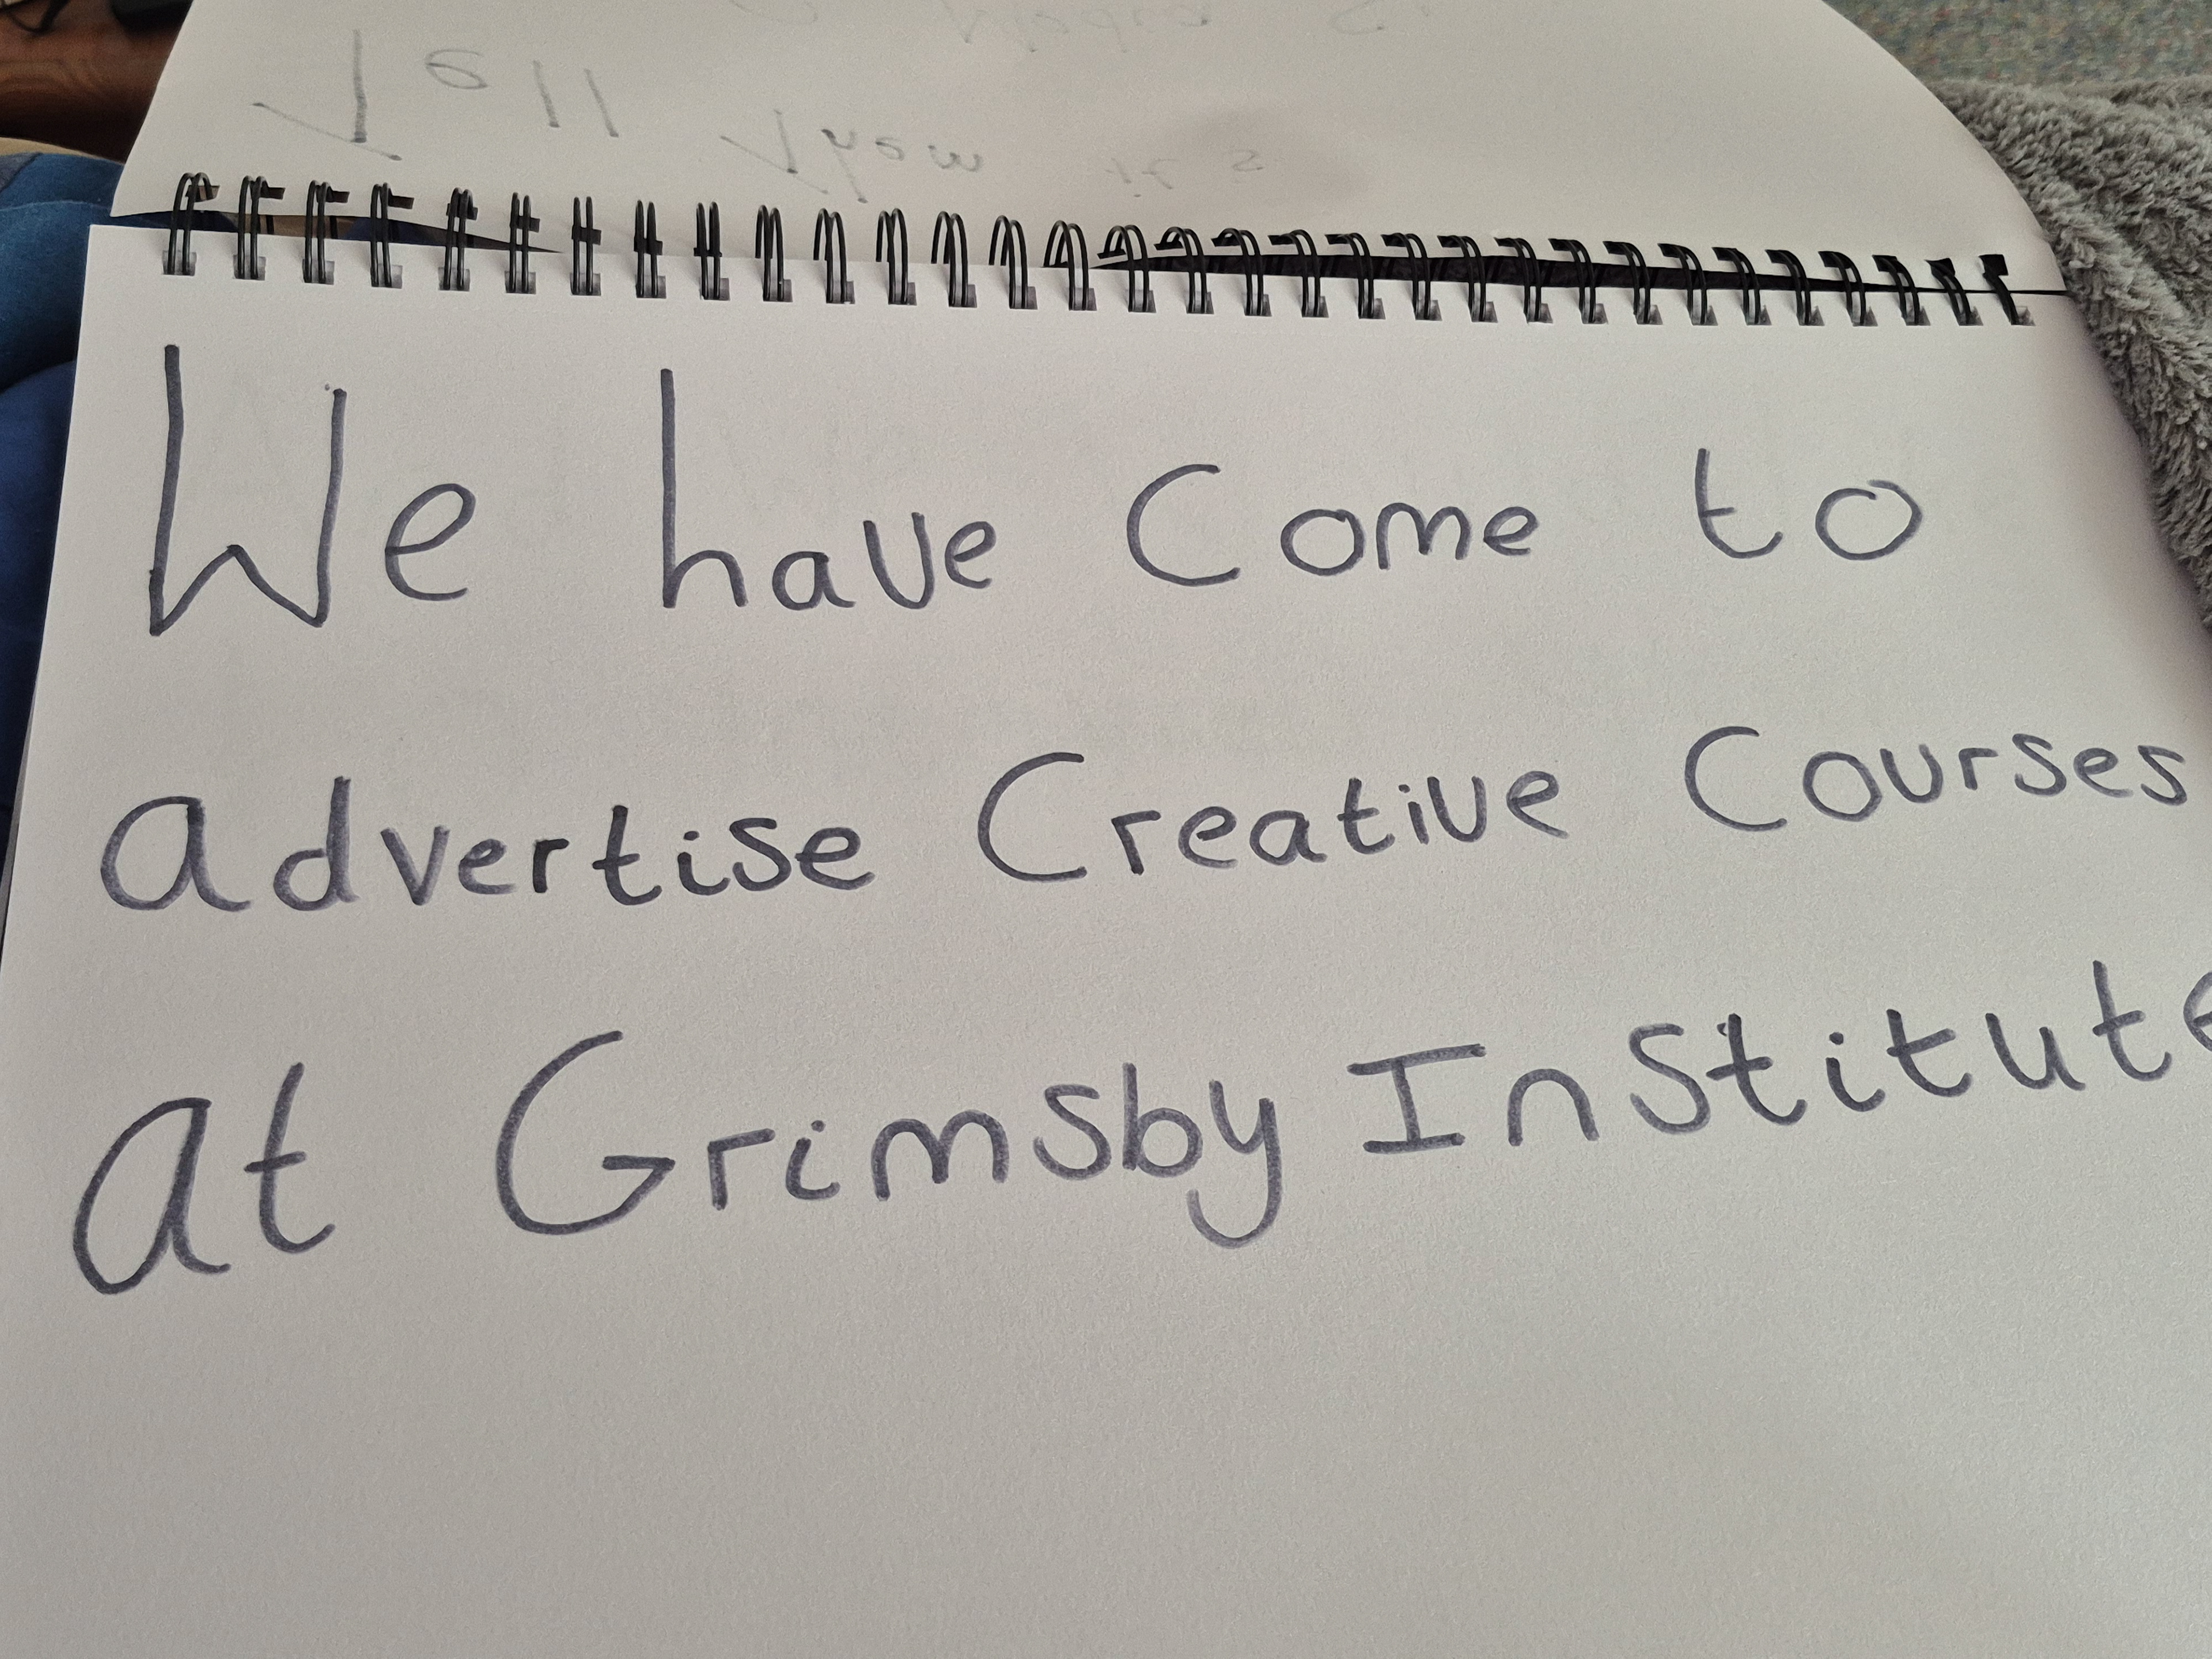 Tell them it's
We have Come to
advertise Creative Courses
at Grimsby Institute